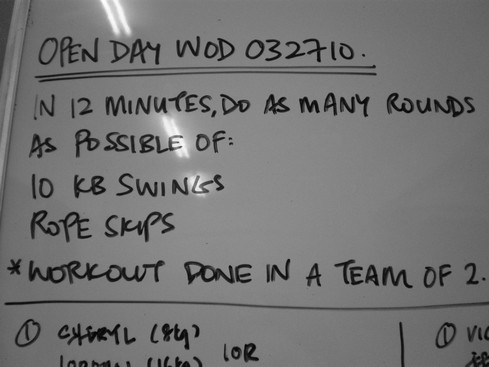 OPEN DAY WOD 032710.
IN 12 MINUTES, DO AS MANY ROUNDS
AS POSSIBLE OF:
10 KB SWINGS
ROPE SKIPS
*WORKOUT DONE IN A TEAM OF 2.
① CHERYL (8kg)
10R
① VIC